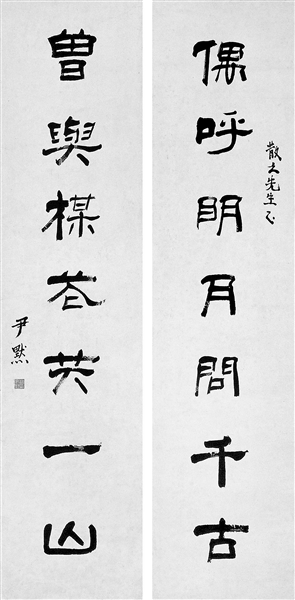 偶呼明月問千古
散木先生正
曾與楳花共一山
尹默